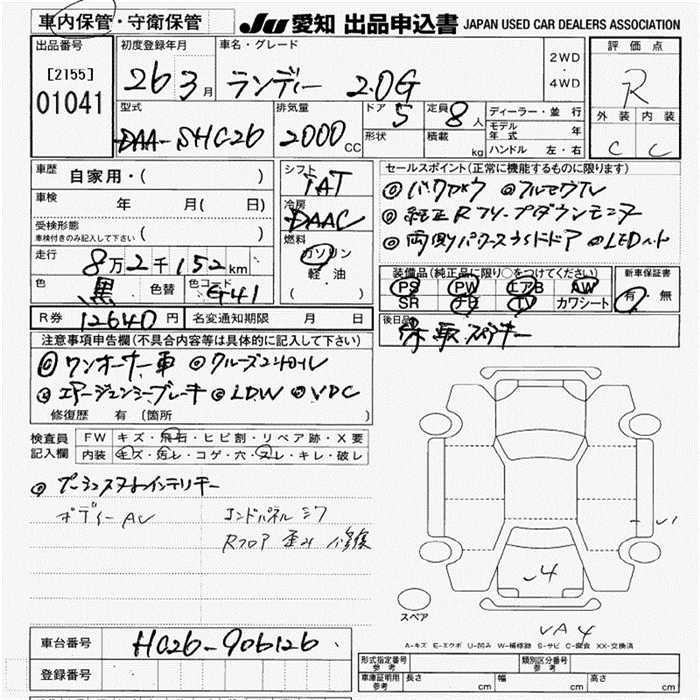 車内保管・守衛保管
JU 愛知 出品申込書 JAPAN USED CAR DEALERS ASSOCIATION
出品番号
[2155]
01041
初度登録年月
26 3月
車名・グレード
ランディー 2.0G
2WD
・
4WD
評価点
R
外装 内装
C C
型式
DAA-SHC26
排気量
2000 CC
ドア 5
形状
定員 8人
積載 kg
ディーラー・並行
モデル年式 年
ハンドル 左・右
車歴
自家用・( )
車検
年 月( 日)
受検形態
車検付きのみ記入して下さい ( )
走行
8万2千152km
色 黒 色替 色コード G41
シフト
IAT
冷房
AAC
燃料
ガソリン
軽・油
( )
セールスポイント(正常に機能するものに限ります)
◎バックカメラ ◎フルセグTV
◎純正Rフリップダウンモニター
◎両側パワースライドドア ◎LEDライト
装備品(純正品に限り○をつけてください)
PS PW エアB AW
SR ナビ TV カワシート
新車保証書
有・無
後日品
R券 12640円 名変通知期限 月 日
注意事項申告欄(不具合内容等は具体的に記入して下さい)
◎ワンオーナー車 ◎クルーズコントロール
◎エマージェンシーブレーキ ◎LDW ◎VDC
修復歴 有(箇所 )
検査員記入欄
FW キズ・飛石・ヒビ割・リペア跡・X要
内装 キズ・汚レ・コゲ・穴・スレ・キレ・破レ
◎プッシュスタートインテリキー
ボディーAU エンドパネルシワ
Rフロア 歪み 修復
スペア
A-キズ E-エクボ U-凹み W-補修跡 S-サビ C-腐食 XX-交換済
車台番号 HC26-906126
登録番号
形式指定番号 参考
類別区分番号 参考
車庫証明用 参考 長さ cm 幅 cm 高さ cm